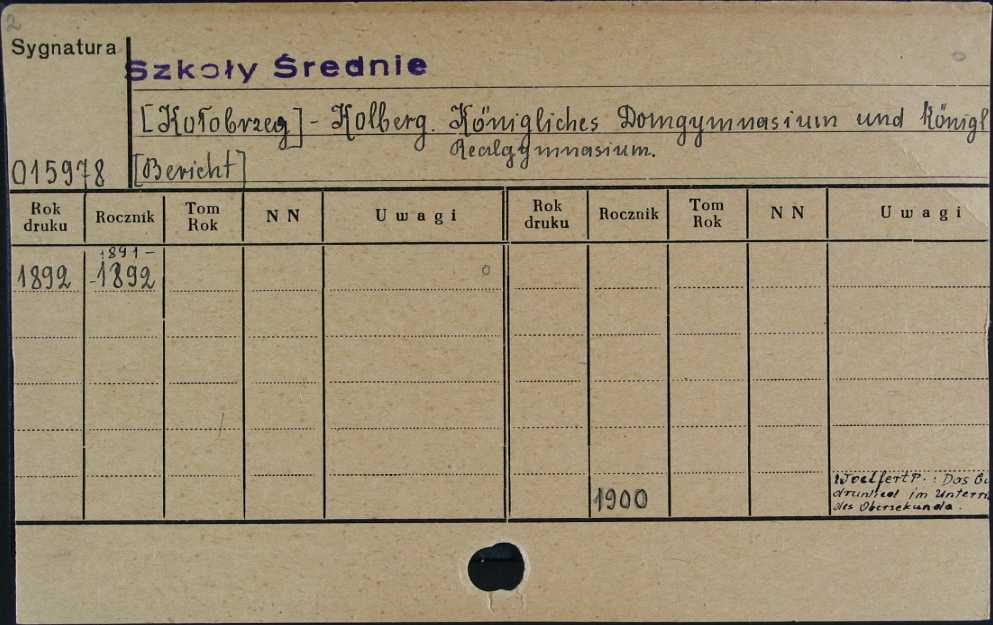 2
Sygnatura
Szkoły Średnie
[Kołobrzeg] - Kolberg. Königliches Domgymnasium und Königl
Realgymnasium.
015978 [Bericht]
Rok druku Rocznik Tom Rok N N Uwagi Rok druku Rocznik Tom Rok N N Uwagi
1891 -
1892 -1892
Woelfert P. : Das
1900 im Unterri
des Obersekunda.